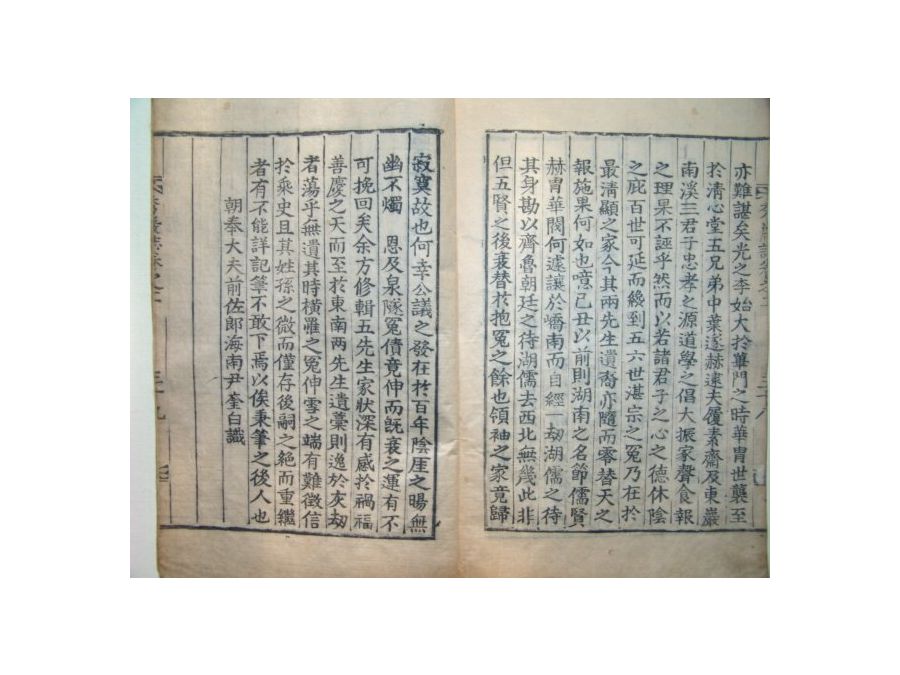 亦難諶矣光之李始大扵蓽門之時華胄世襲至
扵淸心堂五兄弟中葉遂赫遠夫履素齋及東巖
南溪三君子忠孝之源道學之倡大振家聲食報
之理果不誣乎然而以若諸君子之心之德休陰
之庇百世可延而纔到五六世湛宗之冤乃在扵
最淸顯之家今其兩先生遺裔亦隨而零替天之
報施果何如也噫己丑以前則湖南之名節儒賢
赫胄華閥何遽讓扵嶠南而自經一劫湖儒之待
其身勘以齊魯朝廷之待湖儒去西北無幾此非
但五賢之後衰替扵抱冤之餘也領袖之家竟歸
寂寞故也何幸公議之發在扵百年陰厓之暘無
幽不燭 恩及泉隧冤債竟伸而旣衰之運有不
可挽回矣余方修輯五先生家狀深有感扵禍福
善慶之天而至扵東南两先生遺藁則逸扵灰劫
者蕩乎無遺其時橫罹之冤伸雪之端有難徵信
扵乘史且其姓孫之微而僅存後嗣之絶而重繼
者有不能詳記筆不敢下焉以俟秉筆之後人也
朝奉大夫前佐郞海南尹奎白識
三十九